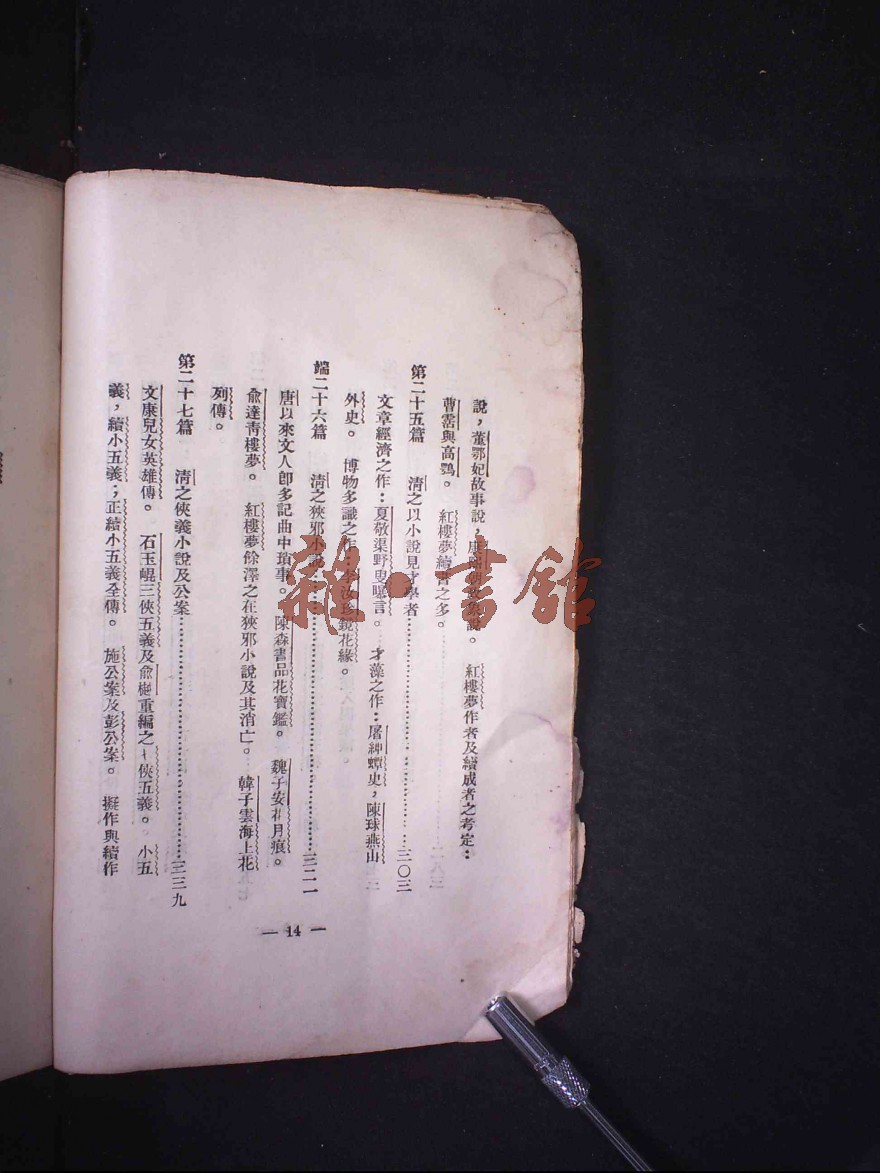 說，董鄂妃故事說，康熙朝政象說。　紅樓夢作者及續成者之考定：
曹霑與高鶚。　紅樓夢續書之多。
第二十五篇　清之以小說見才學者……三〇三
文章經濟之作：夏敬渠野叟曝言。　才藻之作：屠紳蟫史，陳球燕山
外史。　博物多識之作：李汝珍鏡花緣。
端二十六篇　清之狹邪小說……三二一
唐以來文人卽多記曲中瑣事。　陳森書品花寶鑑。　魏子安花月痕。
兪達靑樓夢。　紅樓夢餘澤之在狹邪小說及其消亡。　韓子雲海上花
列傳。
第二十七篇　清之俠義小說及公案……三三九
文康兒女英雄傳。　石玉崐三俠五義及兪樾重編之七俠五義。　小五
義，續小五義；正續小五義全傳。　施公案及彭公案。　擬作與續作
— 14 —
雜·書館